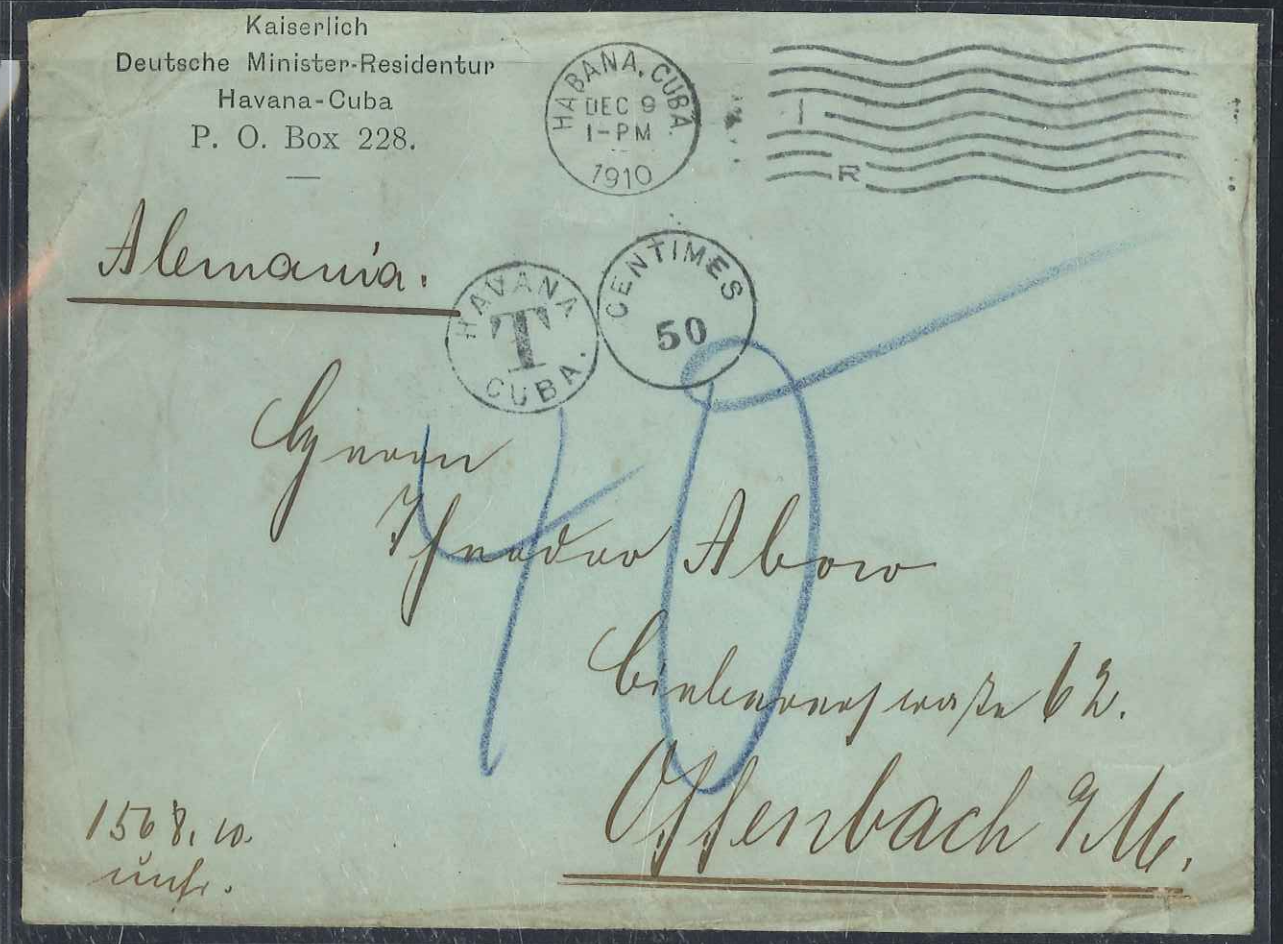 Kaiserlich
Deutsche Minister-Residentur
Havana-Cuba
P. O. Box 228.
HABANA, CUBA.
DEC 9
1-PM
1910
1
R
Alemania.
HAVANA
T
CUBA.
CENTIMES
50
40
Herrn
Theodor Abow
62.
Offenbach a/M.
1568. 10.
unfr.